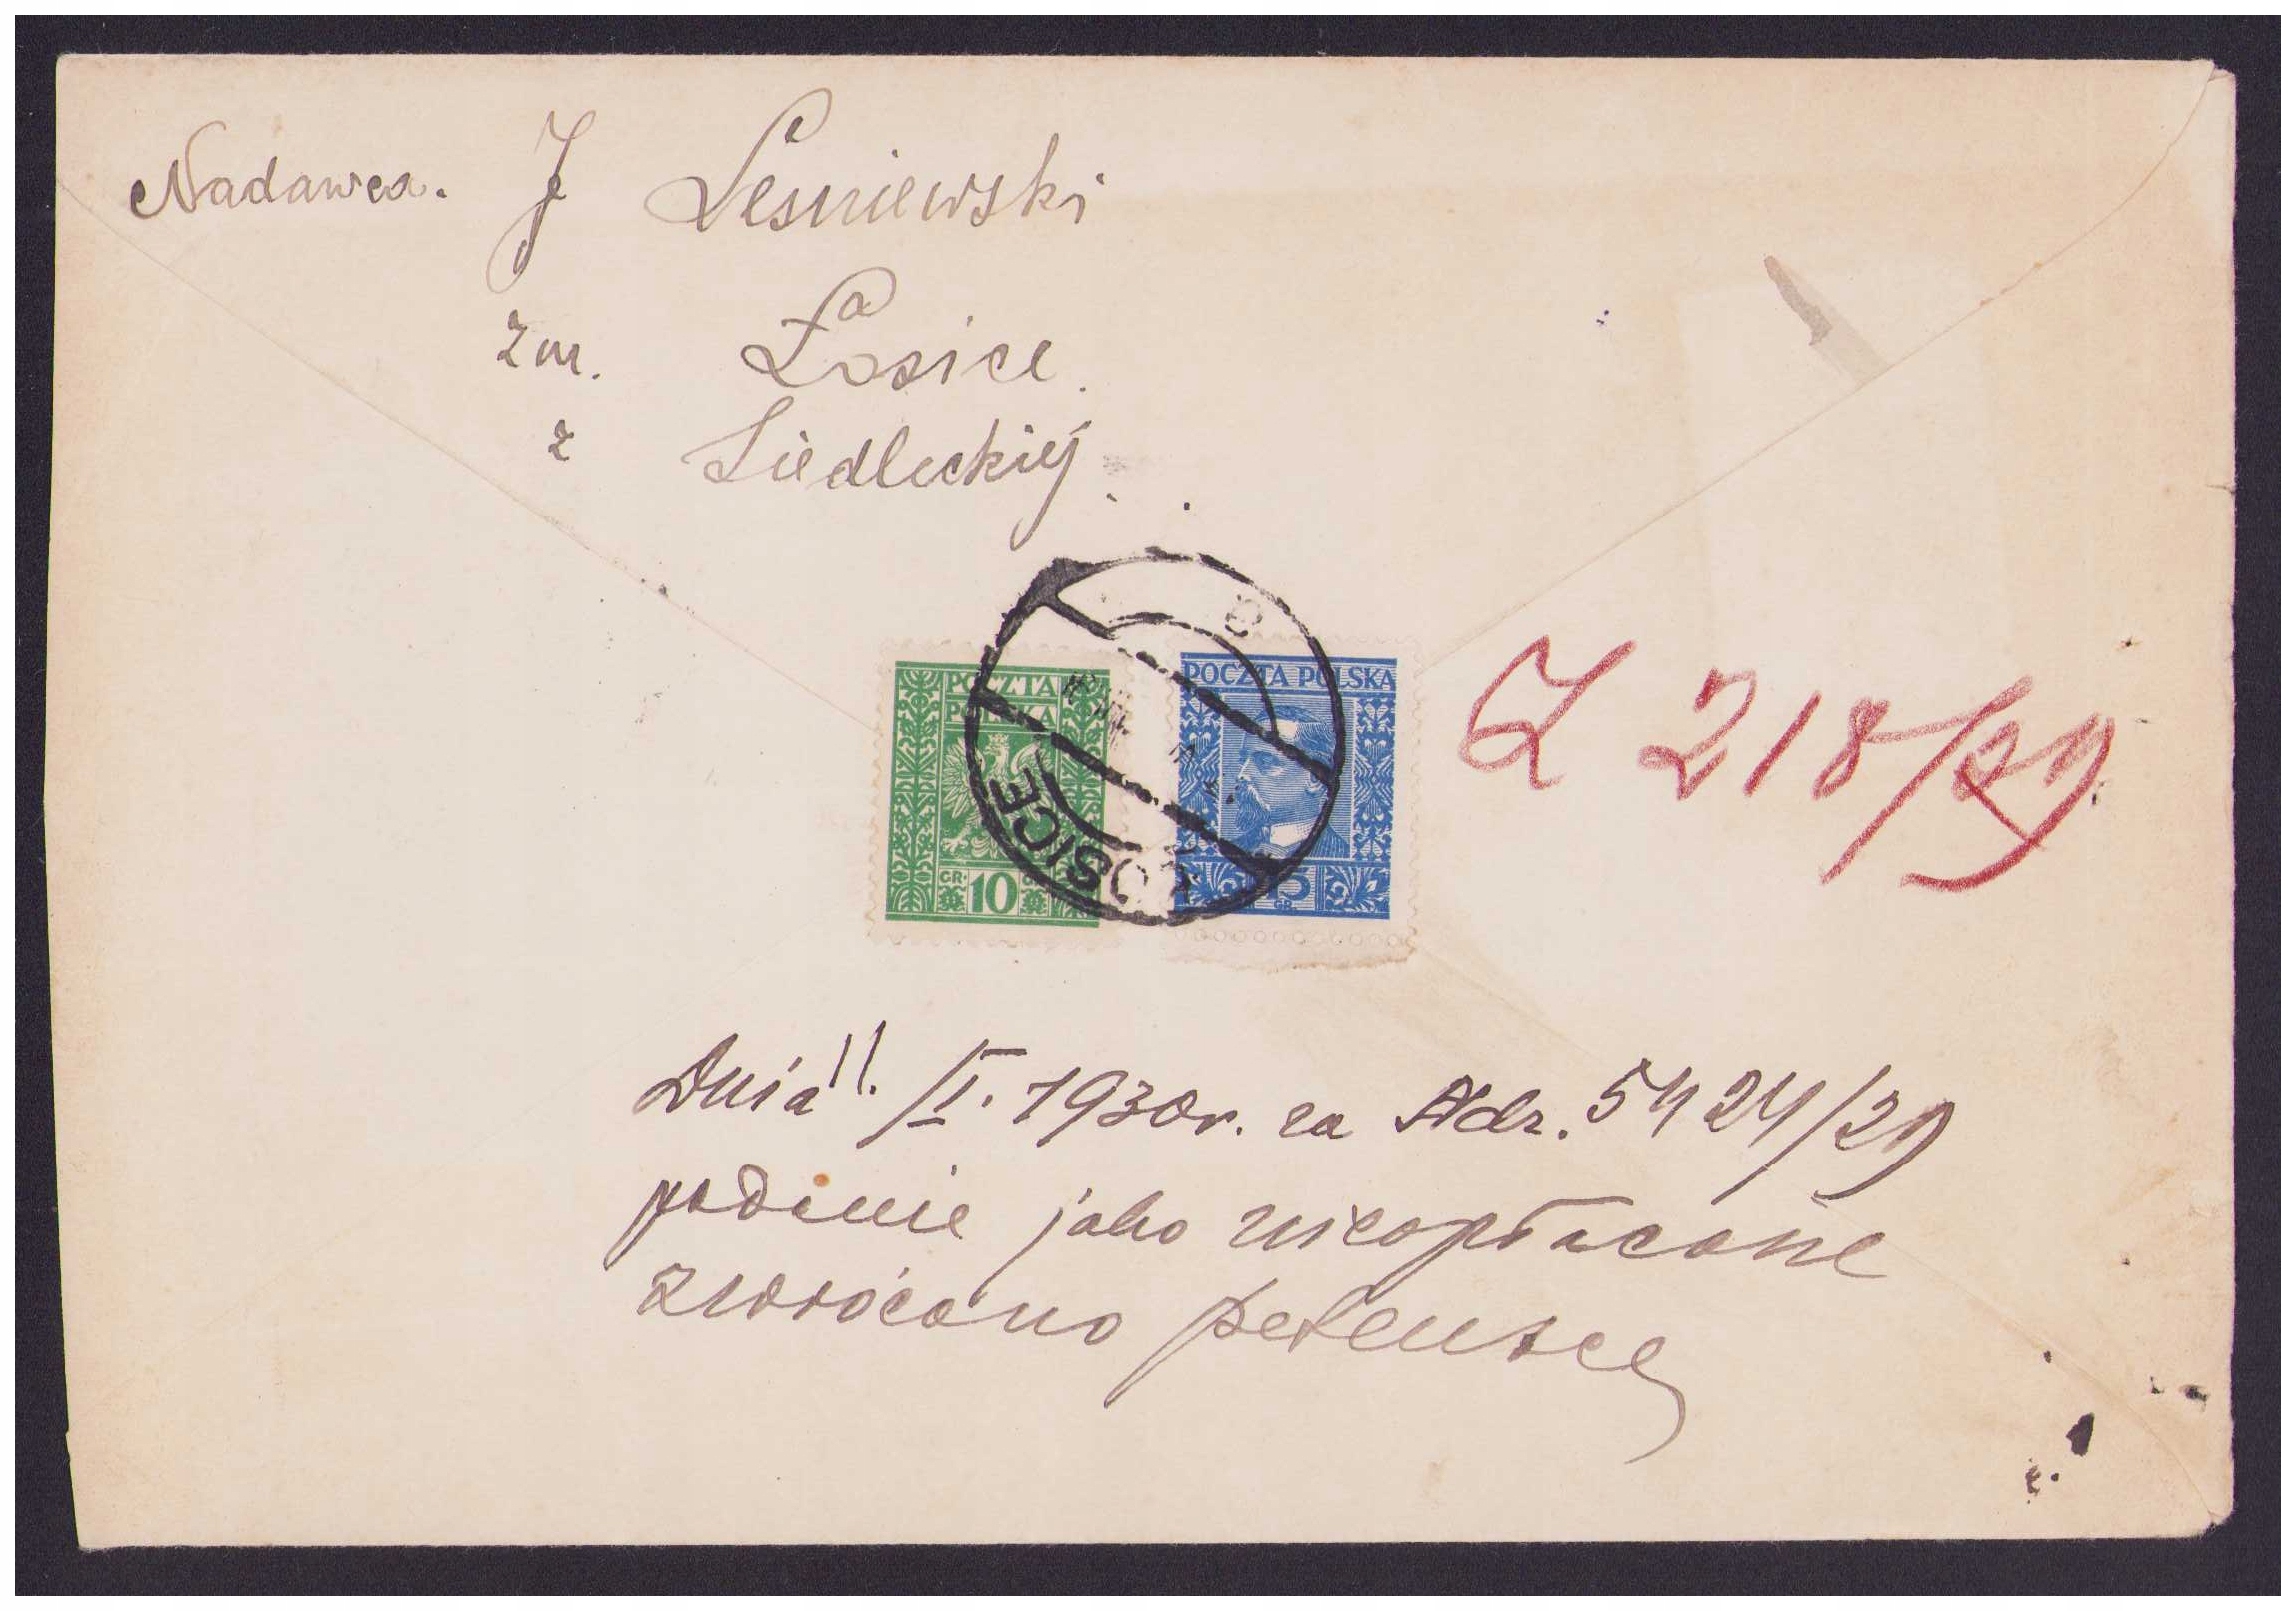 Nadawca. J Lesniewski
zm. Łosice.
z Siedleckiej.
POCZTA
POLSKA
GR. 10 GR.
POCZTA POLSKA
15
GR.
ŁOSICE
e
Z 218/29
Dnia 11./I. 1930r. za Ndz. 5424/29
podanie jako nieopłacone
zwrócono petentce